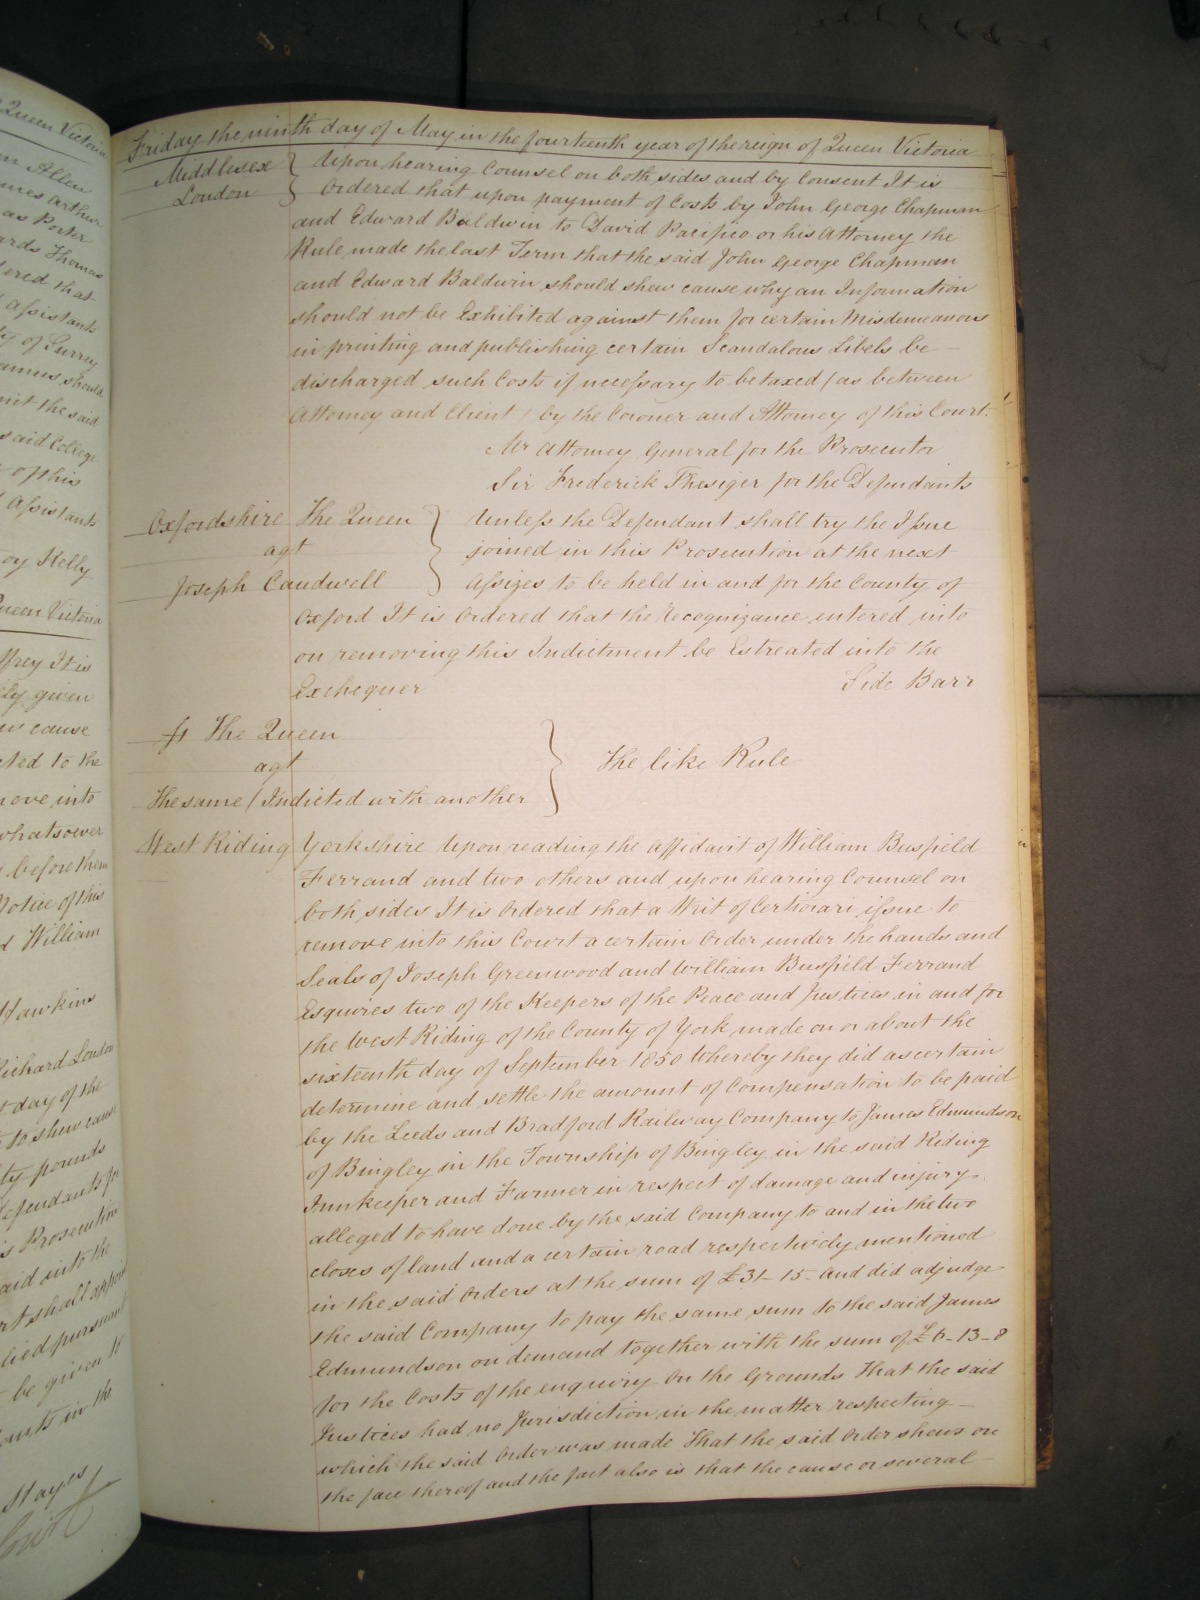 Friday the ninth day of May in the fourteenth year of the reign of Queen Victoria
Middlesex } Upon hearing Counsel on both sides and by Consent It is
London } Ordered that upon payment of Costs by John George Chapman
and Edward Baldwin to David Pacifico or his Attorney the
Rule made the last Term that the said John George Chapman
and Edward Baldwin should shew cause why an Information
should not be Exhibited against them for certain Misdemeanors
in printing and publishing certain Scandalous Libels be –
discharged such Costs if necessary to be taxed (as between
Attorney and Client) by the Coroner and Attorney of this Court.
Mr Attorney General for the Prosecutor
Sir Frederick Thesiger for the Defendants
Oxfordshire The Queen } Unless the Defendant shall try the Issue
agt } joined in this Prosecution at the next
Joseph Caudwell } Assizes to be held in and for the County of
Oxford It is Ordered that the Recognizance entered into
on removing this Indictment be Estreated into the
Exchequer Side Barr
The Queen
agt } The like Rule
The same (Indicted with another
West Riding Yorkshire Upon reading the affidavit of William Busfield
Ferrand and two others and upon hearing Counsel on
both sides It is Ordered that a Writ of Certiorari issue to
remove into this Court a certain Order under the hands and
Seals of Joseph Greenwood and William Busfield Ferrand
Esquires two of the Keepers of the Peace and Justices in and for
the West Riding of the County of York made on or about the
sixteenth day of September 1850 Whereby they did ascertain
determine and settle the amount of Compensation to be paid
by the Leeds and Bradford Railway Company to James Edmundson
of Bingley in the Township of Bingley in the said Riding
Innkeeper and Farmer in respect of damage and injury
alleged to have done by the said Company to and in the two
closes of land and a certain road respectively mentioned
in the said Orders at the sum of £31–15– and did adjudge
the said Company to pay the same sum to the said James
Edmundson on demand together with the sum of £6–13–8
for the Costs of the enquiry On the Grounds That the said
Justices had no Jurisdiction in the matter respecting –
which the said Order was made That the said Order shews on
the face thereof and the fact also is that the cause or several –